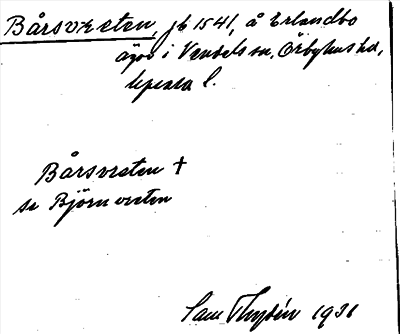 Bårsvreten jb 1541, å Erlandbo
ägor i Vendels sn, Örbyhus hd,
Upsala l.
Bårsvreten †
se Björnvreten
Sam Thydén 1931